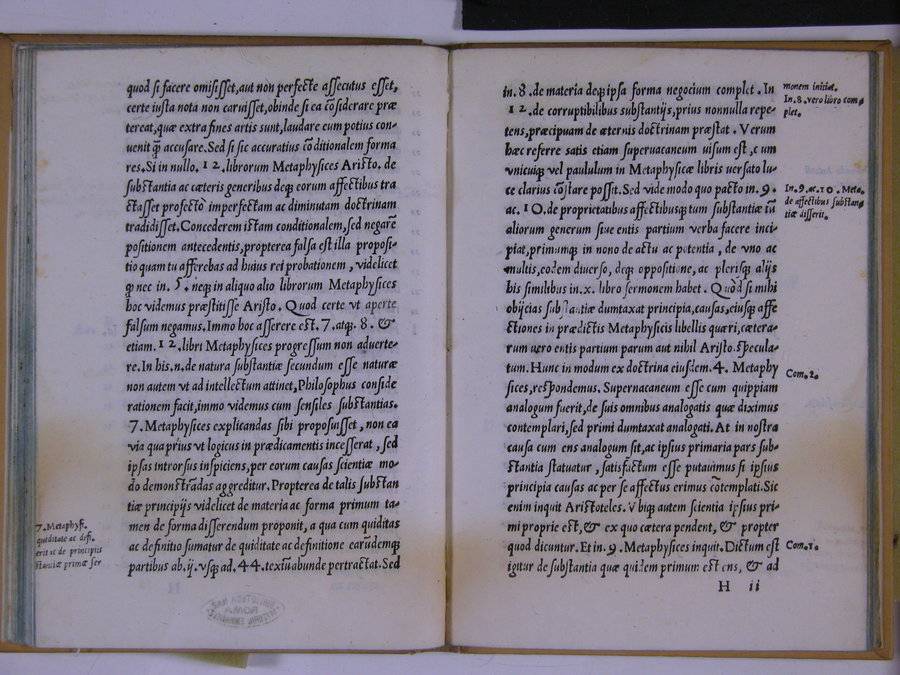 quod si facere omisisset, aut non perfecte assecutus esset,
certe iusta nota non caruisset, obinde si ea cōsiderare præ
tereat, quæ extra fines artis sunt, laudare eum potius con-
uenit q̄ accusare. Sed si sic accuratius cōditionalem forma
res. Si in nullo. 12. librorum Metaphysices Aristo. de
substantia ac cæteris generibus deq; eorum affectibus tra
ctasset profectò imperfectam ac diminutam doctrinam
tradidisset. Concederem istam conditionalem, sed negarē
positionem antecedentis, propterea falsa est illa proposi-
tio quam tu afferebas ad huius rei probationem, videlicet
q̄ nec in. 5. neq; in aliquo alio librorum Metaphysices
hoc videmus præstitisse Aristo. Quod certe vt aperte
falsum negamus. Immo hoc asserere est. 7. atq;. 8. &
etiam. 12. libri Metaphysices progressum non aduerte-
re. In his.n. de natura substantiæ secundum esse naturæ
non autem vt ad intellectum attinet, Philosophus conside
rationem facit, immo videmus cum sensiles substantias.
7. Metaphysices explicandas sibi proposuisset, non ea
via qua prius vt logicus in prædicamentis incesserat, sed
ipsas introrsus inspiciens, per eorum causas scientiæ mo-
do demonstrādas aggreditur. Propterea de talis substan
tiæ principijs videlicet de materia ac forma primum ta-
men de forma disserendum proponit, a qua cum quiditas
ac definitio sumatur de quiditate ac definitione earūdemq;
partibus ab.ij. vsq; ad. 44. textū abunde pertractat. Sed
7. Metaphys.
quiditate ac defi.
erit ac de principiis
stantiæ primæ ser
in. 8. de materia deq; ipsa forma negocium complet. In
12. de corruptibilibus substantijs, prius nonnulla repe-
tens, præcipuam de æternis doctrinam præstat. Verum
hæc referre satis etiam superuacaneum uisum est, cum
vnicuiq; vel paululum in Metaphysicæ libris uersato lu-
ce clarius cōstare possit. Sed vide modo quo pacto in. 9.
ac. 10. de proprietatibus affectibusq; tum substantiæ tū
aliorum generum siue entis partium verba facere inci-
piat, primumq; in nono de actu ac potentia, de vno ac
multis, eodem diuerso, deq; oppositione, ac plerisq; alijs
his similibus in.x. libro sermonem habet. Quòd si mihi
obijcias substantiæ dumtaxat principia, causas, eiusq; affe
ctiones in prædictis Metaphysicis libellis quæri, cætera-
rum uero entis partium parum aut nihil Aristo. specula-
tum. Hunc in modum ex doctrina eiusdem. 4. Metaphy
sices, respondemus. Supernacaneum esse cum quippiam
analogum fuerit, de suis omnibus analogatis quæ diximus
contemplari, sed primi dumtaxat analogati. At in nostra
causa cum ens analogum sit, ac ipsius primaria pars sub-
stantia statuatur, satisfactum esse putauimus si ipsius
principia causas ac per se affectus erimus cōtemplati. Sic
enim inquit Aristoteles. Vbiq; autem scientia ipsius pri-
mi proprie est, & ex quo cætera pendent, & propter
quod dicuntur. Et in. 9. Metaphysices inquit. Dictum est
igitur de substantia quæ quidem primum est ens, & ad
H ii
monem initiat.
In. 8. vero libro com
plet.
In. 9. ac. 10. Meta.
de affectibus substan
tiæ disserit.
Com. 2.
Com. 1.